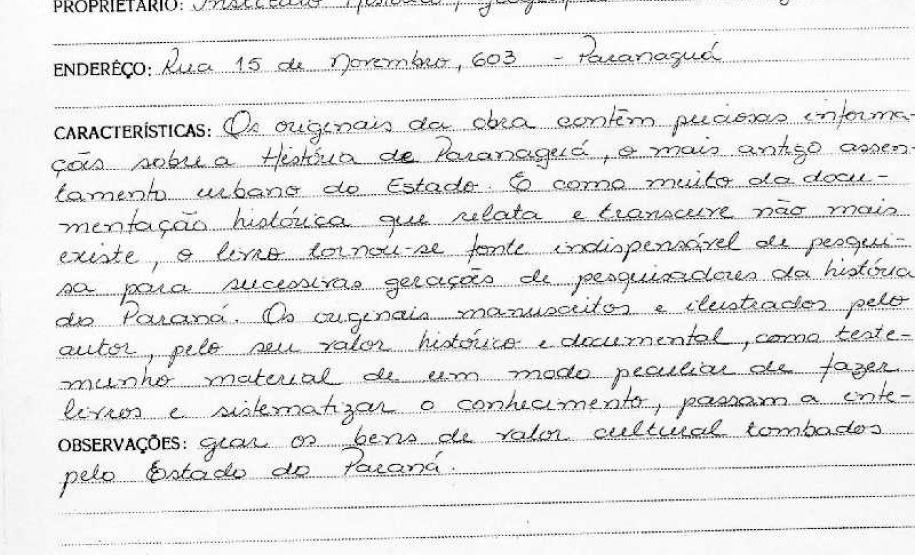 PROPRIETÁRIO: Instituto Histórico,
ENDERÊÇO: Rua 15 de Novembro, 603 - Paranaguá
CARACTERÍSTICAS: Os originais da obra contêm preciosas informa-
ções sobre a História de Paranaguá, o mais antigo assen-
tamento urbano do Estado. E como muito da docu-
mentação histórica que relata e transcreve não mais
existe, o livro tornou-se fonte indispensável de pesqui-
sa para sucessivas gerações de pesquisadores da história
do Paraná. Os originais manuscritos e ilustrados pelo
autor, pelo seu valor histórico e documental, como teste-
munho material de um modo peculiar de fazer
livros e sistematizar o conhecimento, passam a inte-
OBSERVAÇÕES: grar os bens de valor cultural tombados
pelo Estado do Paraná.